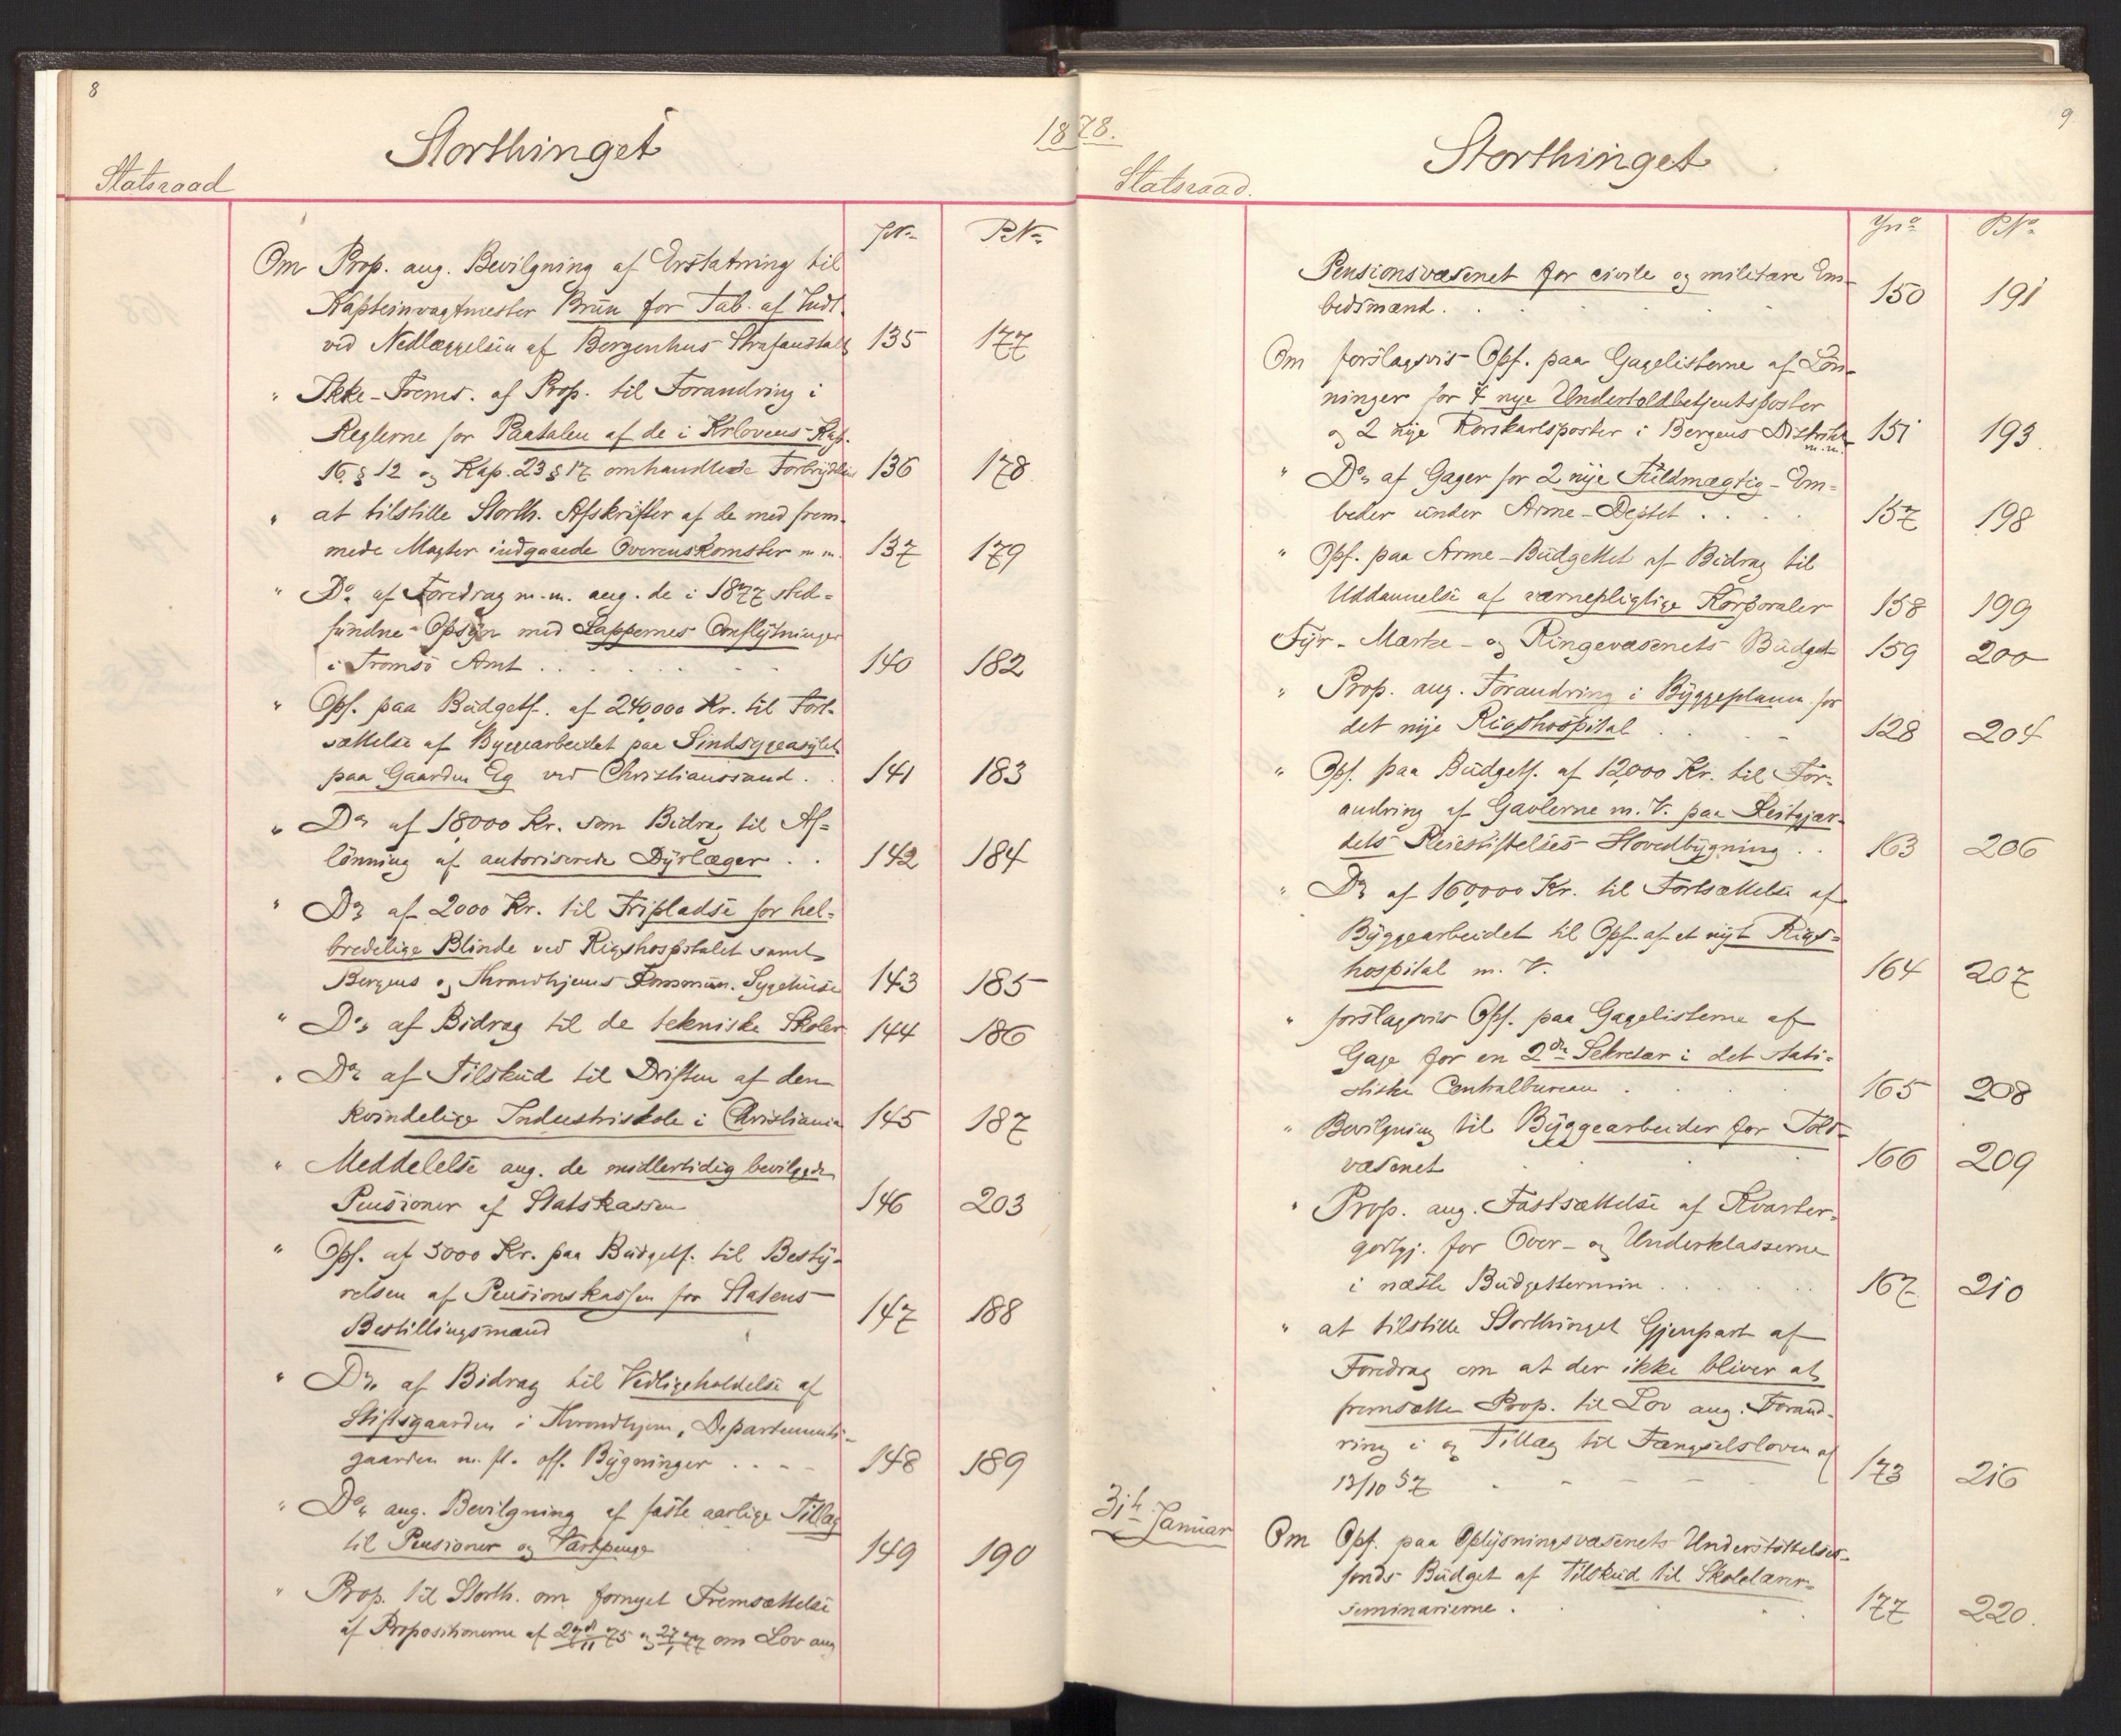 8
Storthinget
1878.
Statsraad
JNo
PNo
Om Prop. ang. Bevilgning af Erstatning til
Kapteinvagtmester Brun for Tab af Indt.
ved Nedlæggelsen af Bergenhus Strafanstalt 135 177
" Ikke-Frems. af Prop. til Forandring i
Reglerne for Paatalen af de i Krlovens Kap.
16 § 12 og Kap. 23 § 17 omhandlede Forbrydelser 136 178
" at tilstille Storth. Afskrifter af de med frem-
mede Magter indgaaede Overenskomster m.m. 137 179
" Do af Foredrag m.m. ang. de i 1877 sted-
fundne Opsyn med Lappernes Omflytninger
i Tromsö Amt . . . 140 182
" Opf. paa Budgetf. af 240,000 Kr. til Fort-
sættelse af Byggearbeidet paa Sindsygeasylet
paa Gaarden Eg ved Christianssand . . 141 183
" Do af 18,000 Kr. som Bidrag til Af-
lönning af autoriserede Dyrlæger . . 142 184
" Do af 2000 Kr. til Fripladse for hel-
bredelige Blinde ved Rigshospitalet samt
Bergens og Throndhjems Kommun. Sygehuse 143 185
" Do af Bidrag til de tekniske Skoler 144 186
" Do af Tilskud til Driften af den
kvindelige Industriskole i Christiania 145 187
" Meddelelse ang. de midlertidig bevilgede
Pensioner af Statskassen 146 203
" Opf. af 5000 Kr. paa Budgetf. til Besty-
relsen af Pensionskassen for Statens
Bestillingsmænd 147 188
" Do af Bidrag til Vedligeholdelse af
Stiftsgaarden i Throndhjem, Departements-
gaarden m. fl. off. Bygninger . . . 148 189
" Do ang. Bevilgning af faste aarlige Tillæg
til Pensioner og Vartpenge 149 190
" Prop. til Storth. om fornyet Fremsættelse
af Propositionerne af 27/11 75 og 27/1 77 om Lov ang
9
Storthinget
Statsraad.
Jno
PNo
Pensionsvæsenet for civile og militære Em-
bedsmænd . . . 150 191
Om forslagsvis Opf. paa Gagelisterne af Lön-
ninger for 4 nye Undertoldbetjentsposter
og 2 nye Rorskarlsposter i Bergens Distrikt m.m. 151 193.
" Do af Gager for 2 nye Fuldmægtig-Em-
beder under Arme-Deptet . . . 157 198
" Opf. paa Arme-Budgettet af Bidrag til
Uddannelse af værnepligtige Korporaler 158 199
Fyr- Mærke- og Ringevæsenets Budget 159 200
" Prop. ang. Forandring i Byggeplanen for
det nye Rigshospital 128 204
" Opf. paa Budgetf. af 12,000 Kr. til For-
andring af Gavlerne m. V. paa Reitgjær-
dets Pleiestiftelses Hovedbygning . . 163 206
" Do af 160,000 Kr. til Fortsættelse af
Byggearbeidet til Opf. af et nyt Rigs-
hospital m. V. 164 207
" forslagsvis Opf. paa Gagelisterne af
Gage for en 2den Sekretær i det stati-
stiske Centralbureau . . 165 208
" Bevilgning til Byggearbeider for Told-
væsenet 166 209
" Prop. ang. Fastsættelse af Kvarter-
godtgj. for Over- og Underklasserne
i næste Budgettermin . . . 167 210
" at tilstille Storthinget Gjenpart af
Foredrag om at der ikke bliver at
fremsætte Prop. til Lov ang. Forand-
ring i og Tillæg til Fængselsloven af
13/10 57 . . . 173 216
31te Januar
Om Opf. paa Oplysningsvæsenets Understöttelses-
fonds Budget af Tilskud til Skolelærer-
seminarierne . . . 177 220.